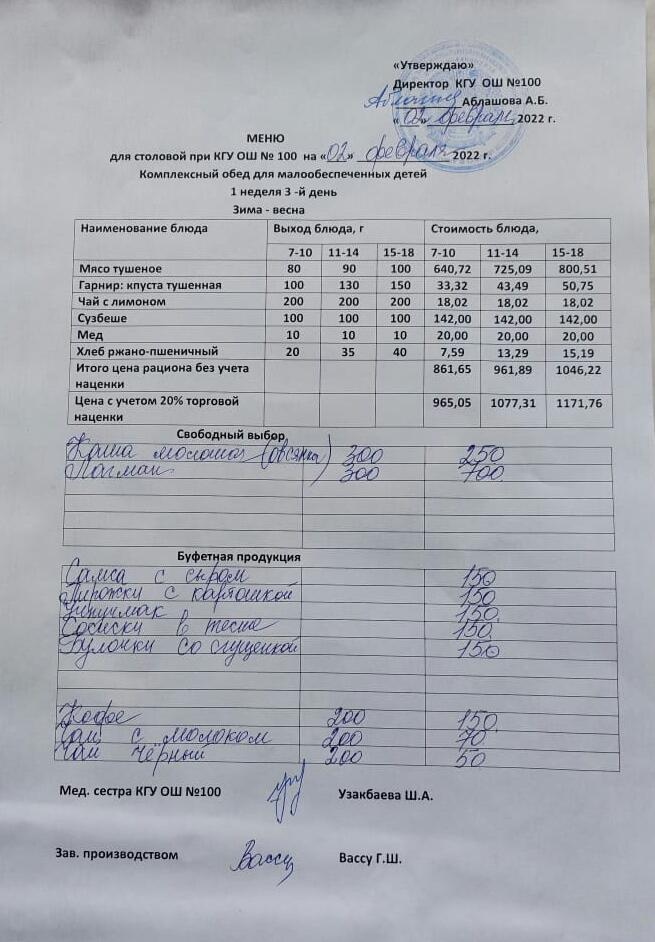 «Утверждаю»
Директор КГУ ОШ №100
Аблашова Аблашова А.Б.
«02» февраля 2022 г.
МЕНЮ
для столовой при КГУ ОШ № 100 на «02» февраля 2022 г.
Комплексный обед для малообеспеченных детей
1 неделя 3 -й день
Зима - весна
Наименование блюда Выход блюда, г Стоимость блюда,
7-10 11-14 15-18 7-10 11-14 15-18
Мясо тушеное 80 90 100 640,72 725,09 800,51
Гарнир: кпуста тушенная 100 130 150 33,32 43,49 50,75
Чай с лимоном 200 200 200 18,02 18,02 18,02
Сузбеше 100 100 100 142,00 142,00 142,00
Мед 10 10 10 20,00 20,00 20,00
Хлеб ржано-пшеничный 20 35 40 7,59 13,29 15,19
Итого цена рациона без учета 861,65 961,89 1046,22
наценки
Цена с учетом 20% торговой 965,05 1077,31 1171,76
наценки
Свободный выбор
Каша молочная (овсянка) 300 250
Лагман 300 700
Буфетная продукция
Самса с сыром 150
Пирожки с картошкой 150
Учпучмак 150
Сосиски в тесте 150
Булочки со сгущенкой 150
Кофе 200 150
Чай с молоком 200 70
Чай чёрный 200 50
Мед. сестра КГУ ОШ №100 Узакбаева Ш.А.
Зав. производством Вассу Вассу Г.Ш.